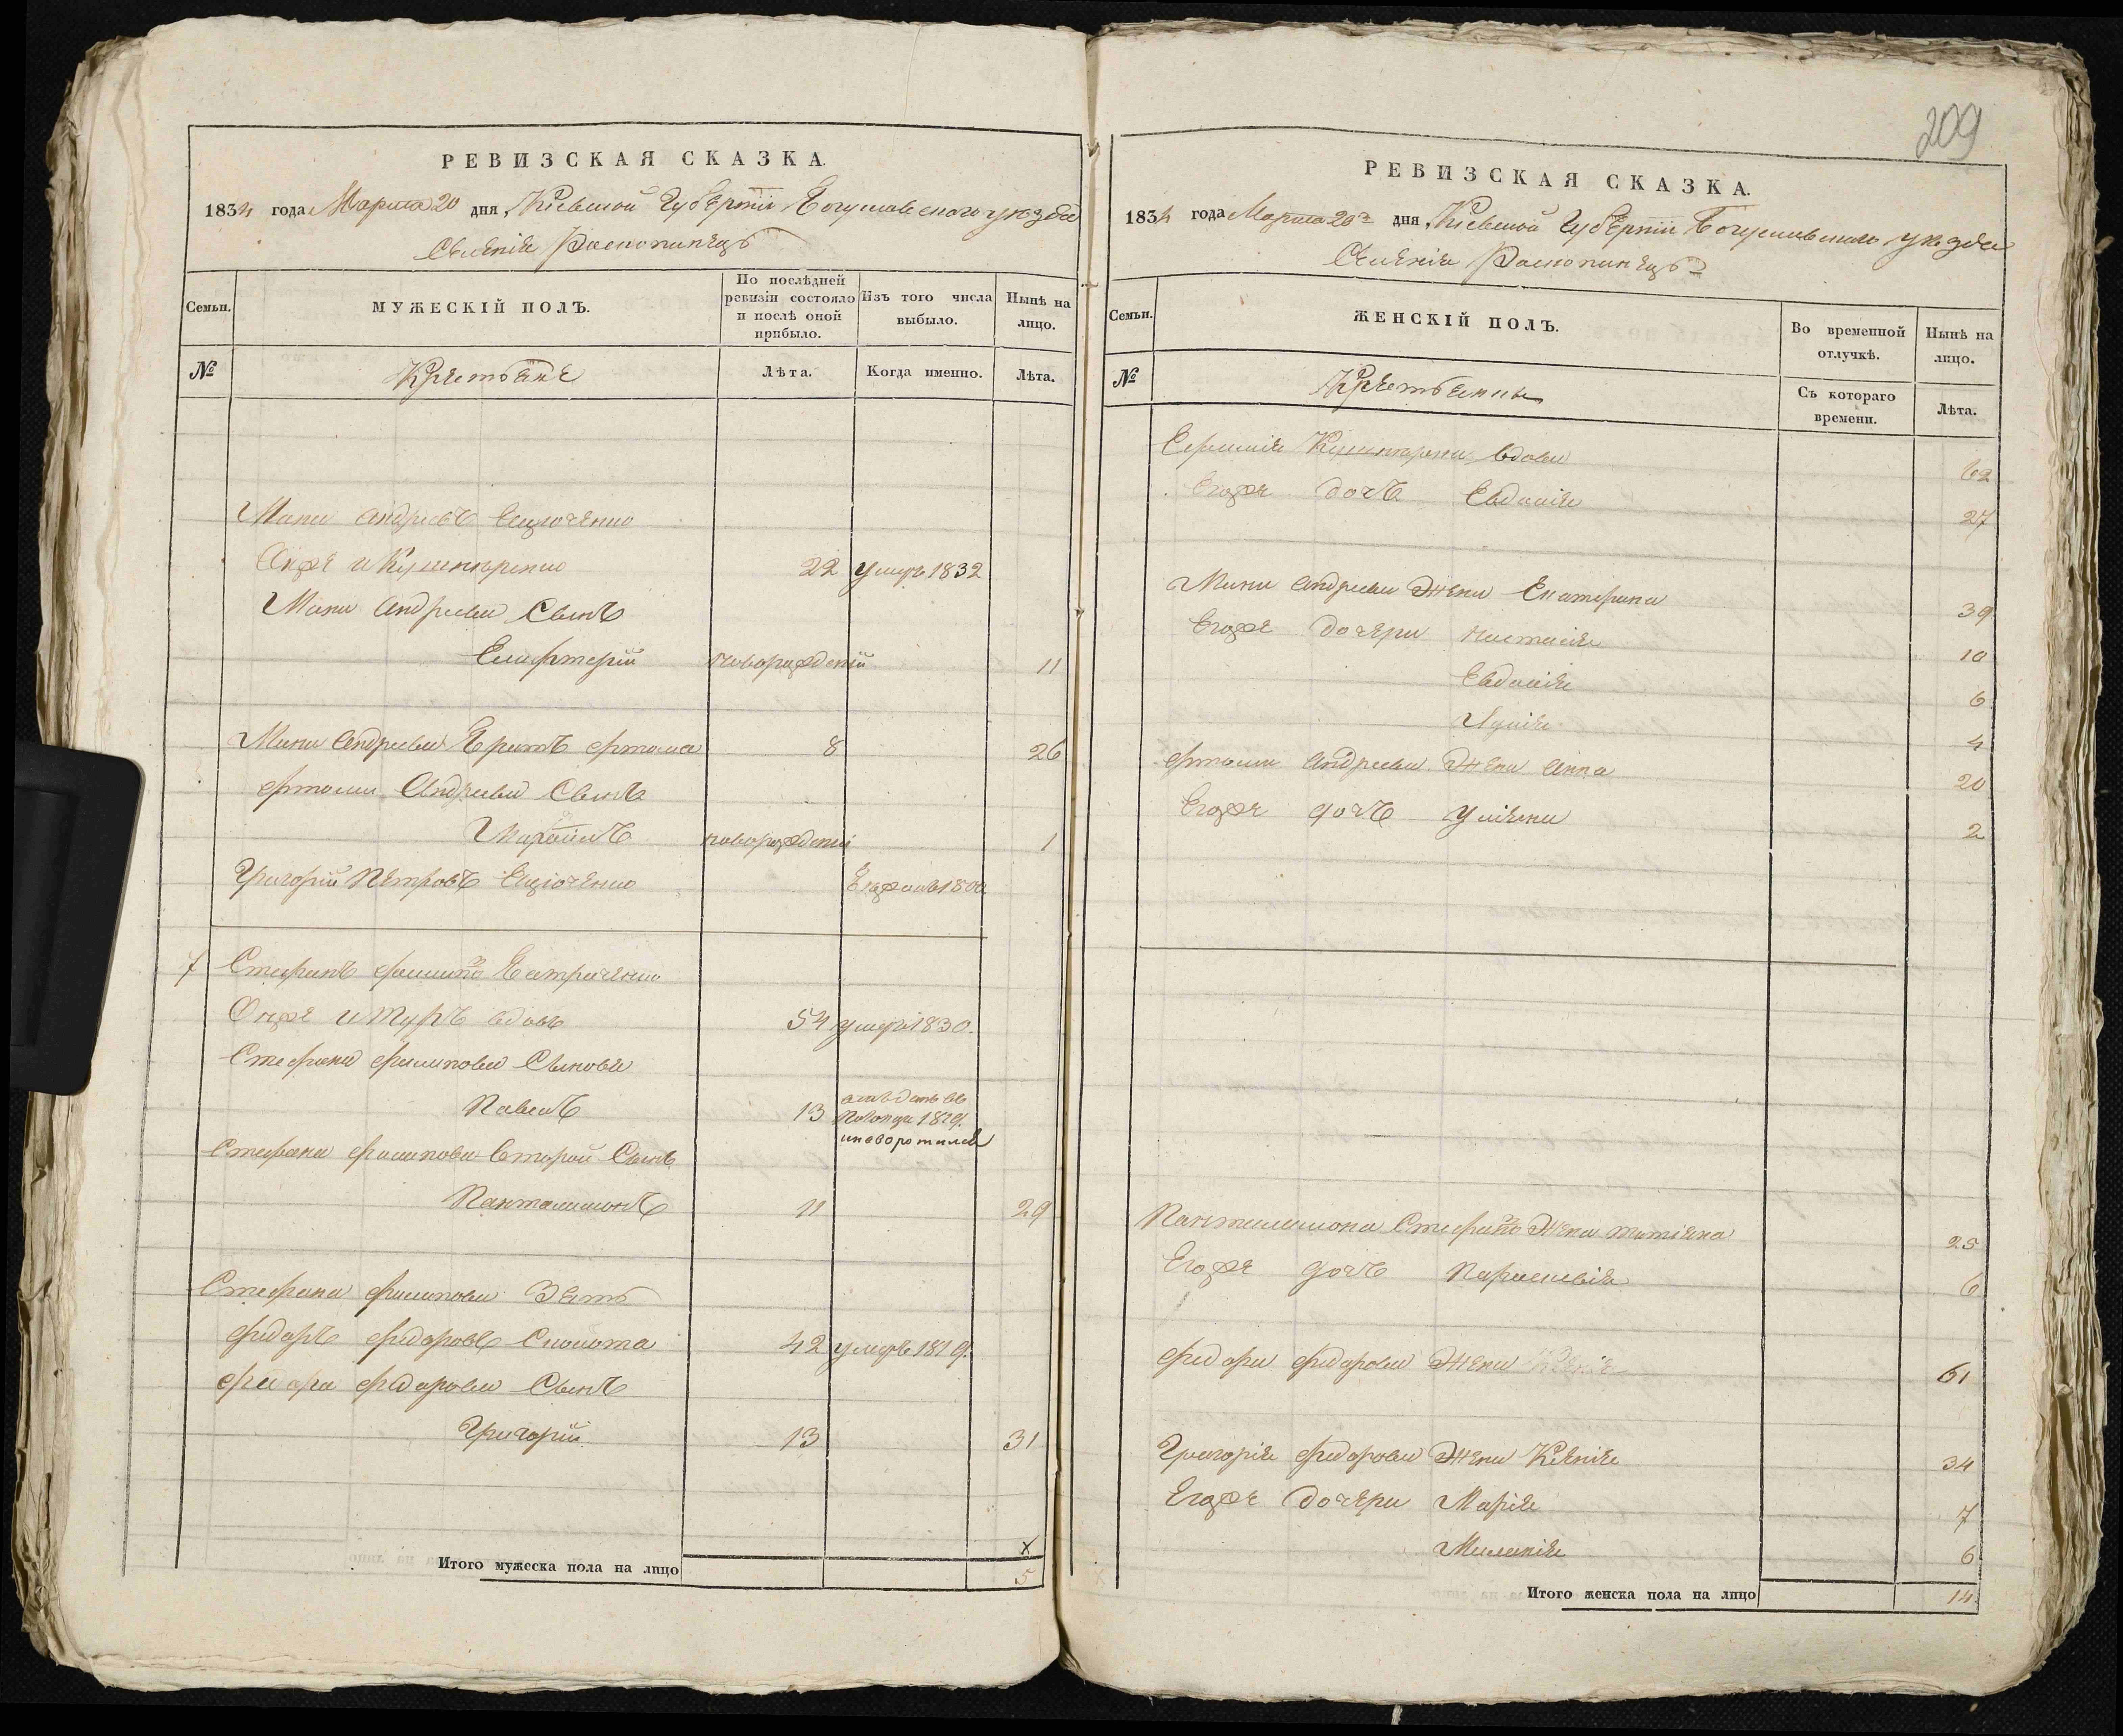 209
РЕВИЗСКАЯ СКАЗКА.
1834 года Марта 20 дня, Кіевской Губерніи Богуславскаго уезда
Селенія Роскопинецъ
Семьи.
МУЖЕСКІЙ ПОЛЪ.
По послѣдней ревизіи состояло и послѣ оной прибыло.
Изъ того числа выбыло.
Нынѣ на лицо.
№
Крестьяне
Лѣта.
Когда именно.
Лѣта.
Андреевъ
Онже 22 умеръ 1832
Андреева Сынъ
Елефтерій новорожденій 11
Андреева Братъ 8 26
Андреева Сынъ
новорожденій 1
Григорій Петровъ
7 Стефанъ
Онже вдовъ 54 умеръ 1830.
Стефана Филипова Сыновья
Павелъ 13
1829.
Стефана Филипова Второй Сынъ
Пантелимонъ 11 29
Стефана Филипова Зять
Федоръ Федоровъ Сколота 42 умеръ 1829.
Федора Федорова Сынъ
Григорій 13 31
х
Итого мужеска пола на лицо 5
РЕВИЗСКАЯ СКАЗКА.
1834 года Марта 20го дня, Кіевской Губерніи Богуславскаго уезда
Селенія Роскопинецъ
Семьи.
ЖЕНСКІЙ ПОЛЪ.
Во временной отлучкѣ.
Нынѣ на лицо.
№
Крестьянки
Съ котораго времени.
Лѣта.
вдова 62
Егоже дочь Евдокія 27
Андреева Жена Екатерина 39
Егоже дочери Настасія 10
Евдокія 6
Лукія 4
Андреева Жена Анна 20
Егоже дочь Уліяна 2
Пантелимона Жена Татіяна 25
Егоже дочь Параскевія 6
Федора Федорова Жена 61
Григорія Федорова Жена Ксенія 34
Егоже дочери Марія 7
Меланія 6
Итого женска пола на лицо 14